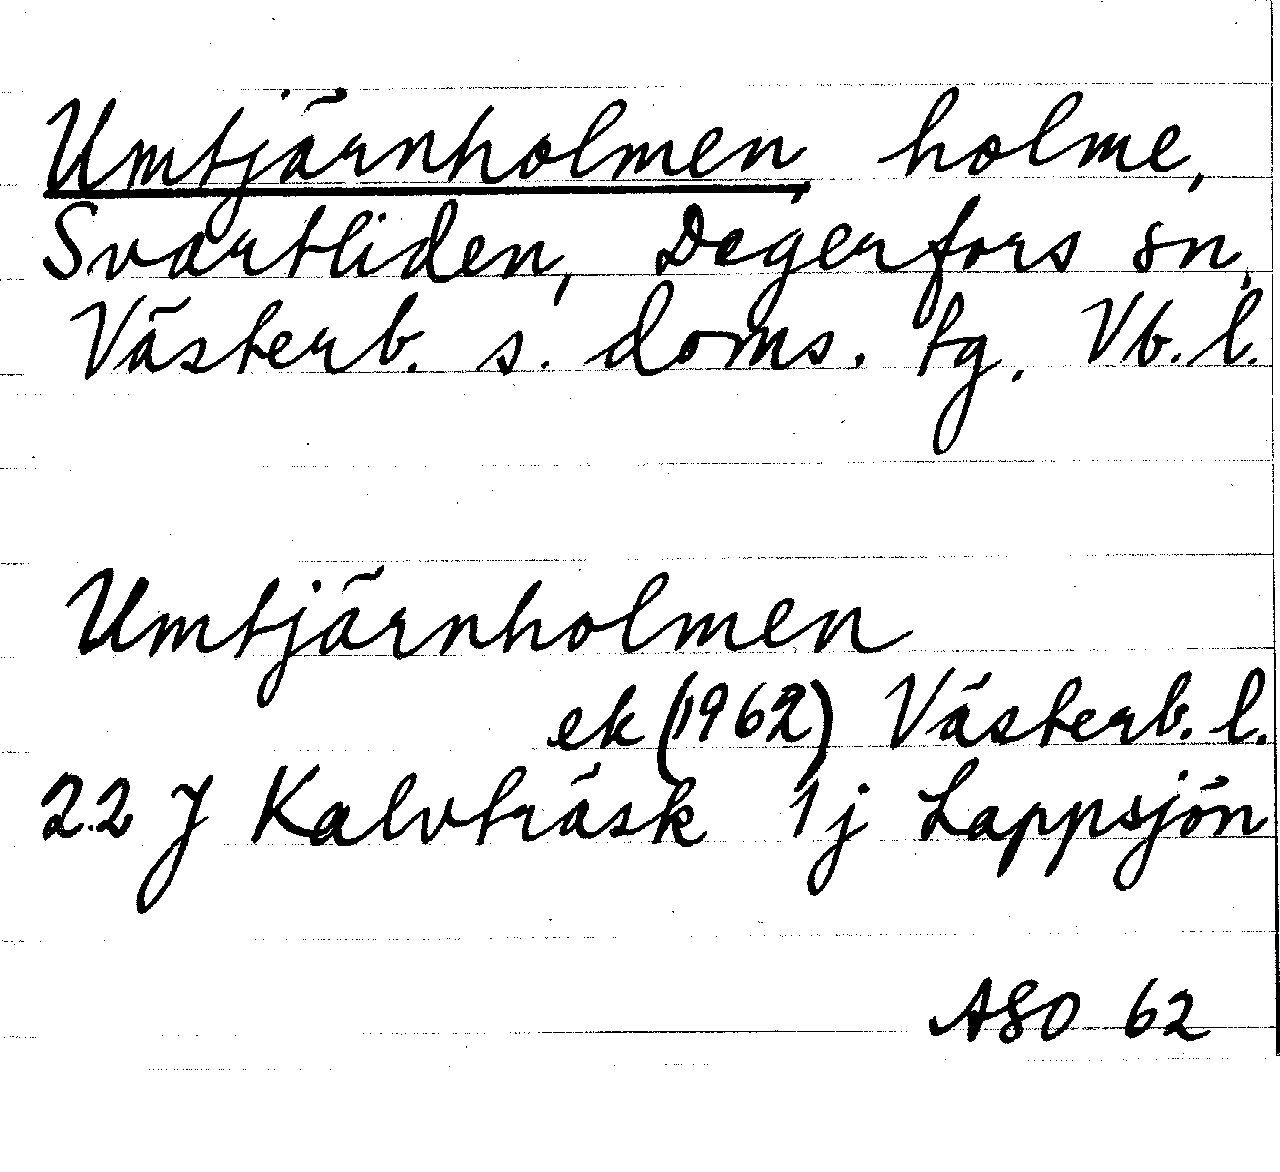 Umtjärnholmen, holme,
Svartliden, Degerfors sn,
Västerb. s. doms. tg. Vb. l.
Umtjärnholmen
ek (1962) Västerb. l.
22 J Kalvträsk 1j Lappsjön
ASO 62